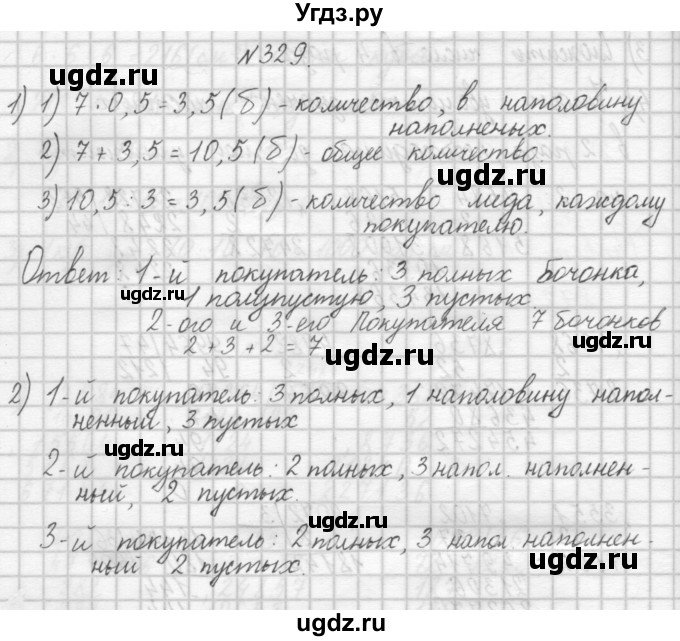 Угдз.ру
№329.
ugdz.ru
1) 1) 7·0,5=3,5(б)-количество, в наполовину
наполненых.
2) 7+3,5=10,5(б)-общее количество
ugdz.ru
3) 10,5:3=3,5(б)-количество меда, каждому
покупателю.
Ответ: 1-й покупатель: 3 полных бочонка,
ugdz.ru
1 полупустую, 3 пустых.
2-ого и 3-его Покупателя 7 бочонков
2+3+2=7
ugdz.ru
2) 1-й покупатель: 3 полных, 1 наполовину напол-
ненный, 3 пустых
ugdz.ru
2-й покупатель: 2 полных, 3 напол. наполнен-
ный, 2 пустых.
ugdz.ru
3-й покупатель: 2 полных, 3 напол наполнен-
ный 2 пустых.
ugdz.ru
ugdz.ru